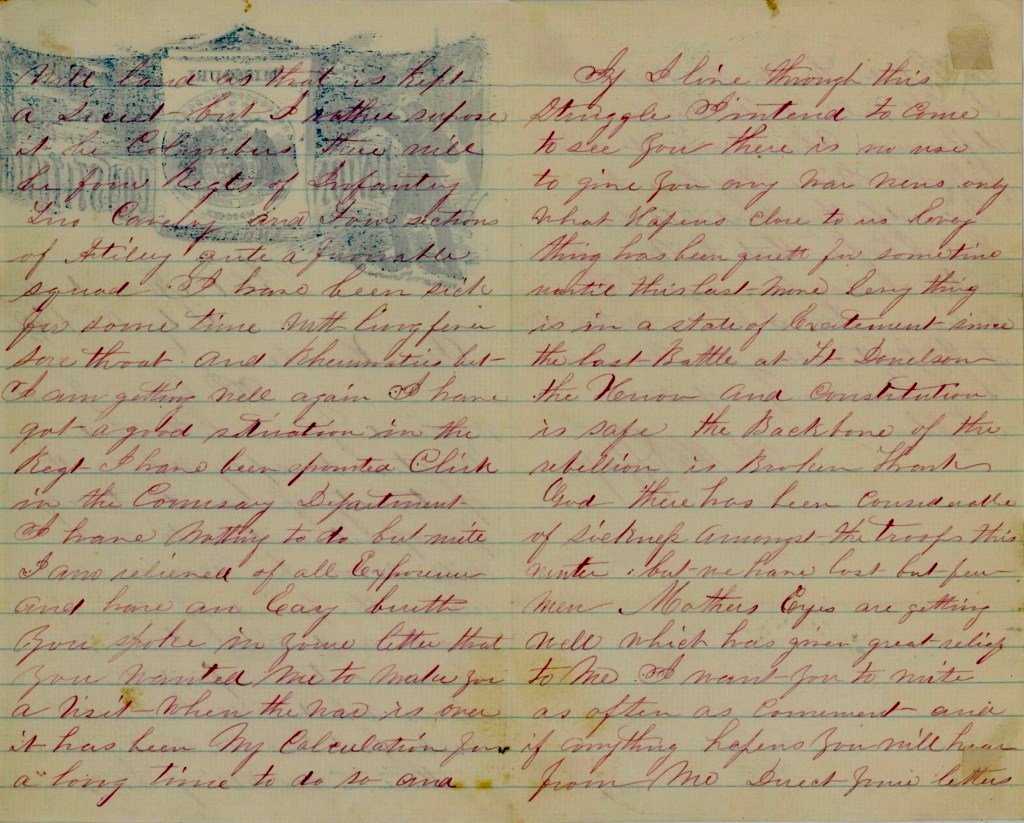 Will land as that is kept
a Seciet but I rather supose
it be Columbus there will
be four Regts of Infantry
Two Cavelry and Four sections
of Atilery quite a favorable
squad I have been sick
for some time with lung fever
sore throat and Rheumatics but
I am getting well again I have
got a good situation in the
Regt I have been aponted Clirk
in the Comisary Department
I have Nothing to do but write
I am relieved of all Exposure
and have an Easy burth
You spoke in youre letter that
You wanted Me to make you
a visit When the war is over
it has been My Calculation for
a long time to do so and
If I live through this
Struggle I intend to come
to see you there is no use
to give you any war news only
what Hapens close to us Every
thing has been quett for sometime
untill this last move Every thing
is in a state of Excitement since
the last Battle at Ft Donelson
the Union and Constitution
is safe the Backbone of the
rebellion is Broken Thank
God there has been considerable
of sickness amongst the troops this
winter but we have lost but few
men Mothers Eyes are getting
well which has given great relief
to Me I want you to write
as often as Convenient and
if anything hapens You will hear
from Me Direct youre letters